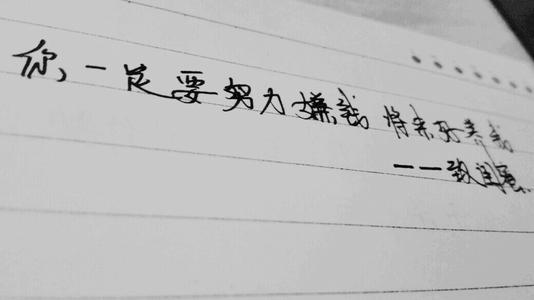 你,一定要努力赚钱 将来好养我
——致闺蜜.